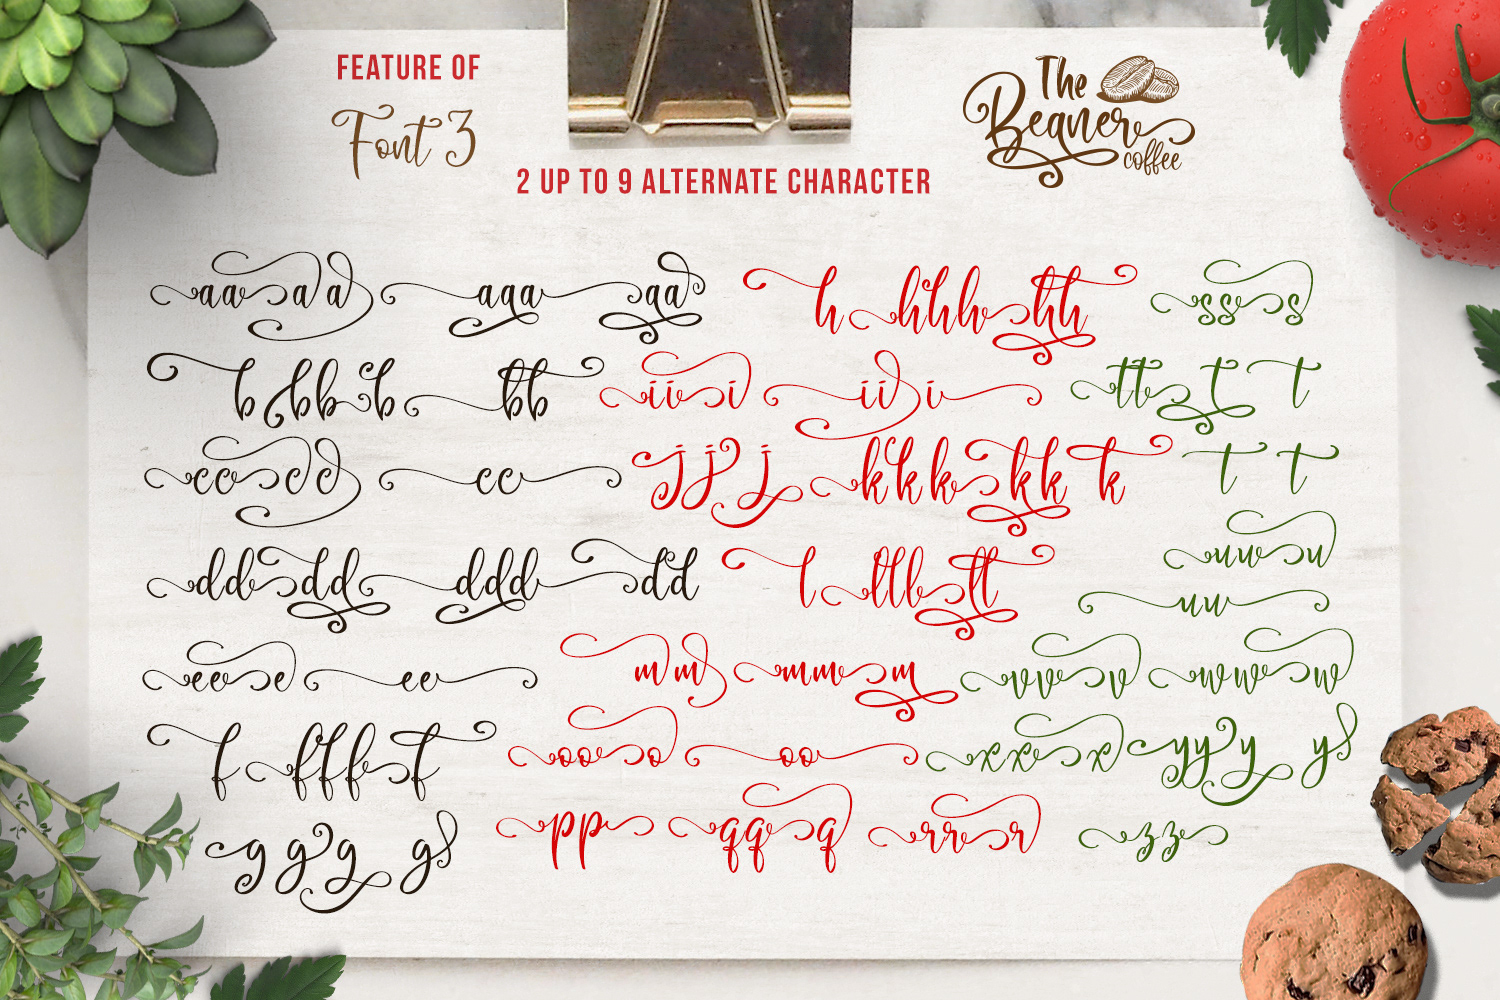 FEATURE OF
Font 3
The
Beaner
coffee
2 UP TO 9 ALTERNATE CHARACTER
aa a a aaa aa
b bb b bb
cc c c cc
dd dd ddd dd
ee e ee
f fff f
g g g g
h hhh hh
ii i ii i
j j j kkk kk k
l lll ll
m m mm m
oo o oo
pp qq q rr r
ss s
tt t t
t t
uu u
uu
vv v ww w
xx x yy y y
zz